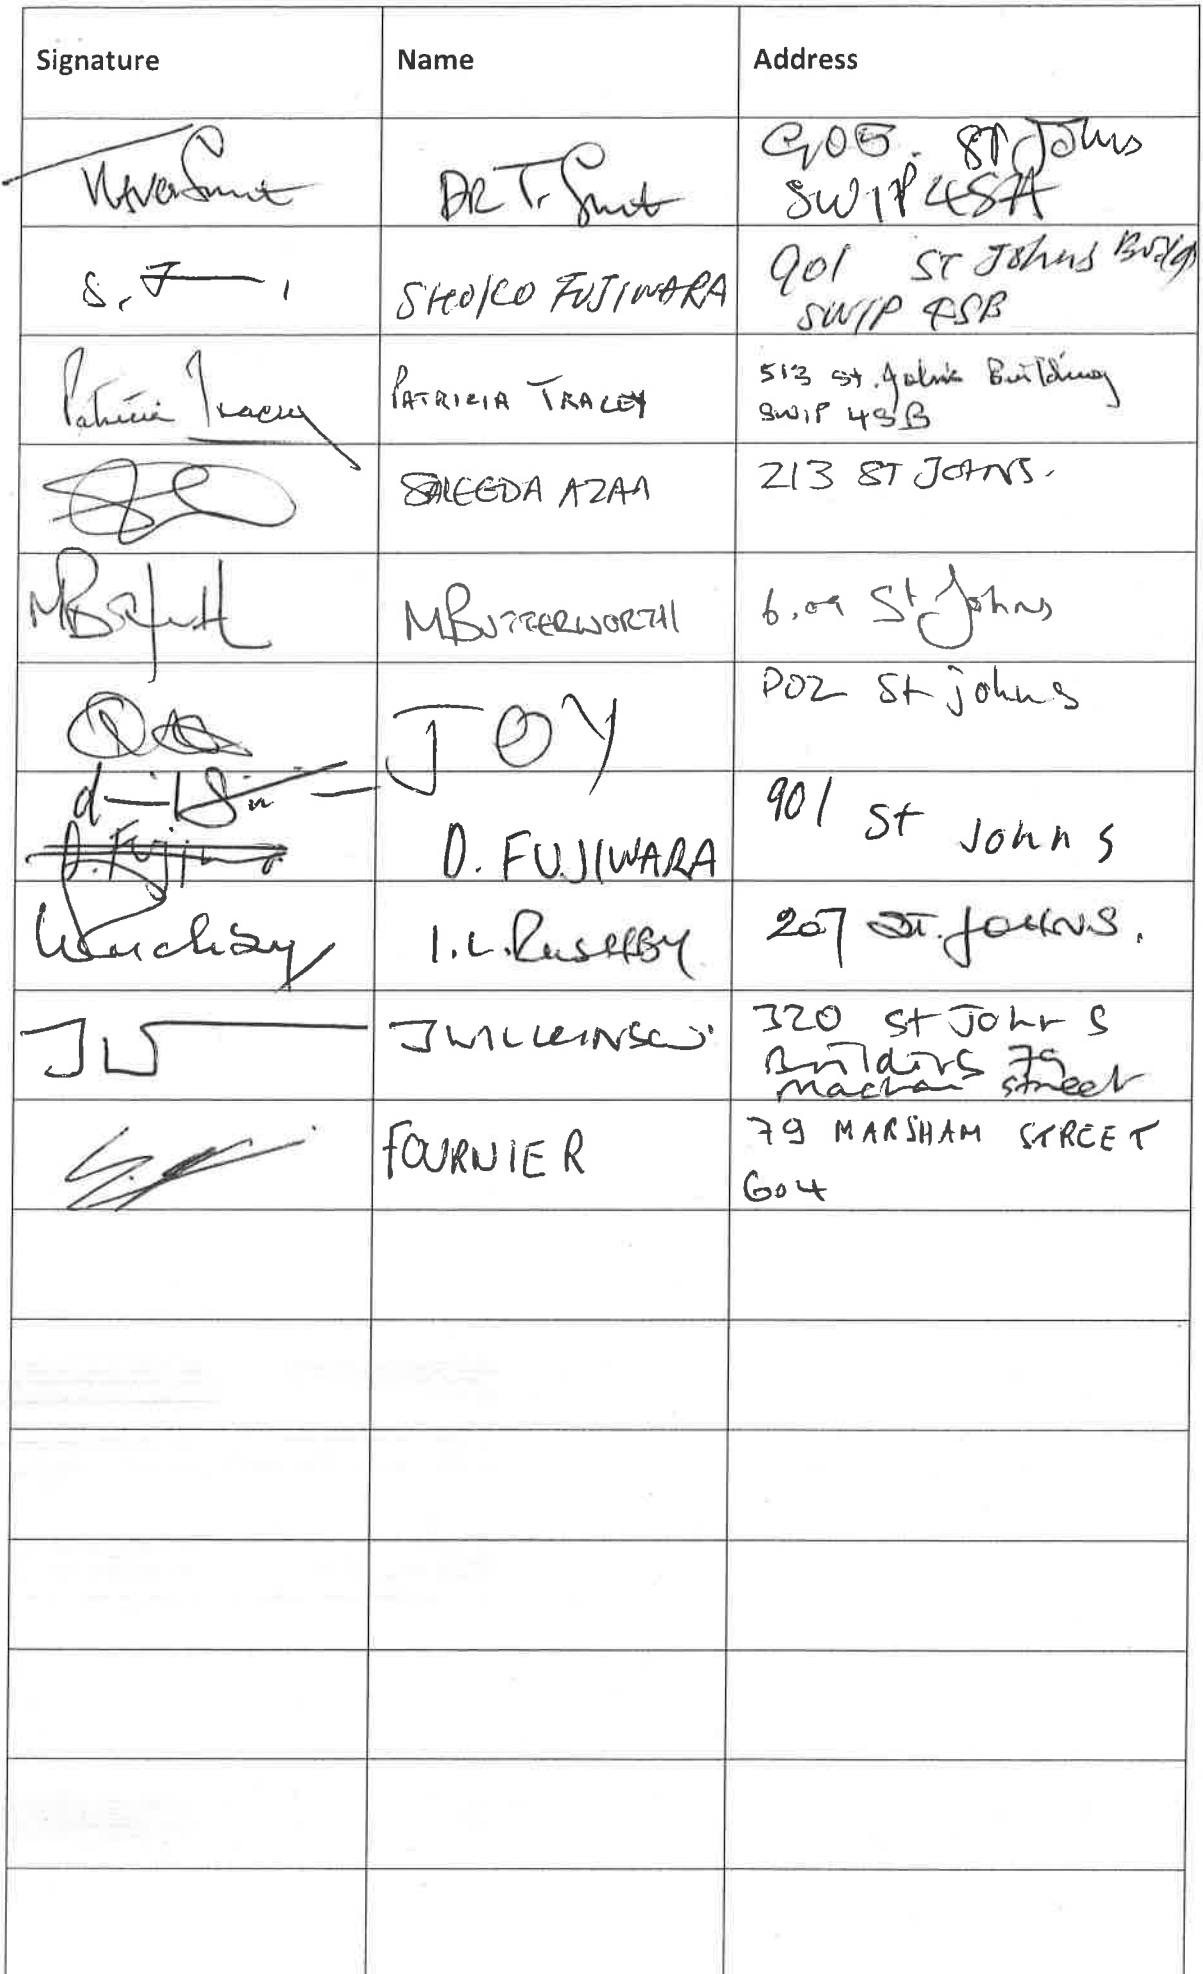 Signature Name Address
DR T. Smit G05. St Johns
SW1P 4SA
S. F SHOKO FUJIWARA 901 ST Johns Buildg
SW1P 4SB
Patricia Tracey PATRICIA TRACEY 513 St. John's Building
SW1P 4SB
SAEEDA AZAM 213 ST JOHNS.
MBUTTERWORTH 6.09 St Johns
JOY P02 St johns
D. FUJIWARA 901 St Johns
D. Fuji
I.L. RUSHBY 207 ST. JOHNS.
JW J WILKINSON 320 St John S
Buildings 79
street
FOURNIER 79 MARSHAM STREET
G04